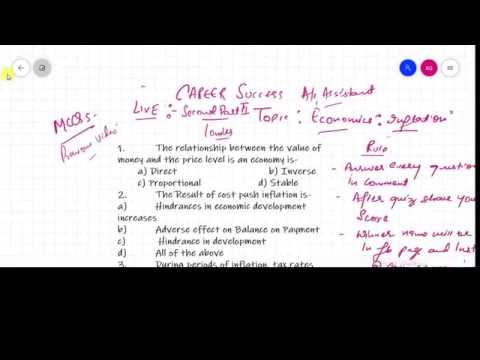 CAREER SUCCESS A/c Assistant
LIVE :- Second Part II Topic : Economics : Inflation
MCQs
Previous Video
1. The relationship between the value of
money and the price level is an economy is-
a) Direct b) Inverse
c) Proportional d) Stable
2. The Result of cost push inflation is-
a) Hindrances in economic development
increases
b) Adverse effect on Balance on Payment
c) Hindrance in development
d) All of the above
3. During periods of inflation, tax rates
Rule
- Answer every question
in comment
- After quiz share you
Score
- Winner name will be
In fb page and Inst